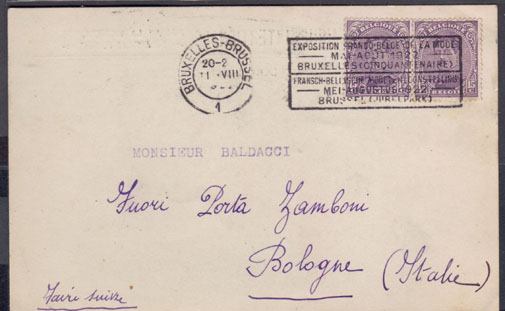 BRUXELLES-BRUSSEL
20-2
11 VIII
1
EXPOSITION FRANCO-BELGE DE LA MODE
MAI-AOUT 1922
BRUXELLES (CINQUANTENAIRE)
FRANSCH-BELGISCHE
MEI-AUGUSTUS 1922
BRUSSEL (JUBELPARK)
BELGIQUE
BELGIQUE
MONSIEUR BALDACCI
Fuori Porta Zamboni
Bologne (Italie)
Faire suivre